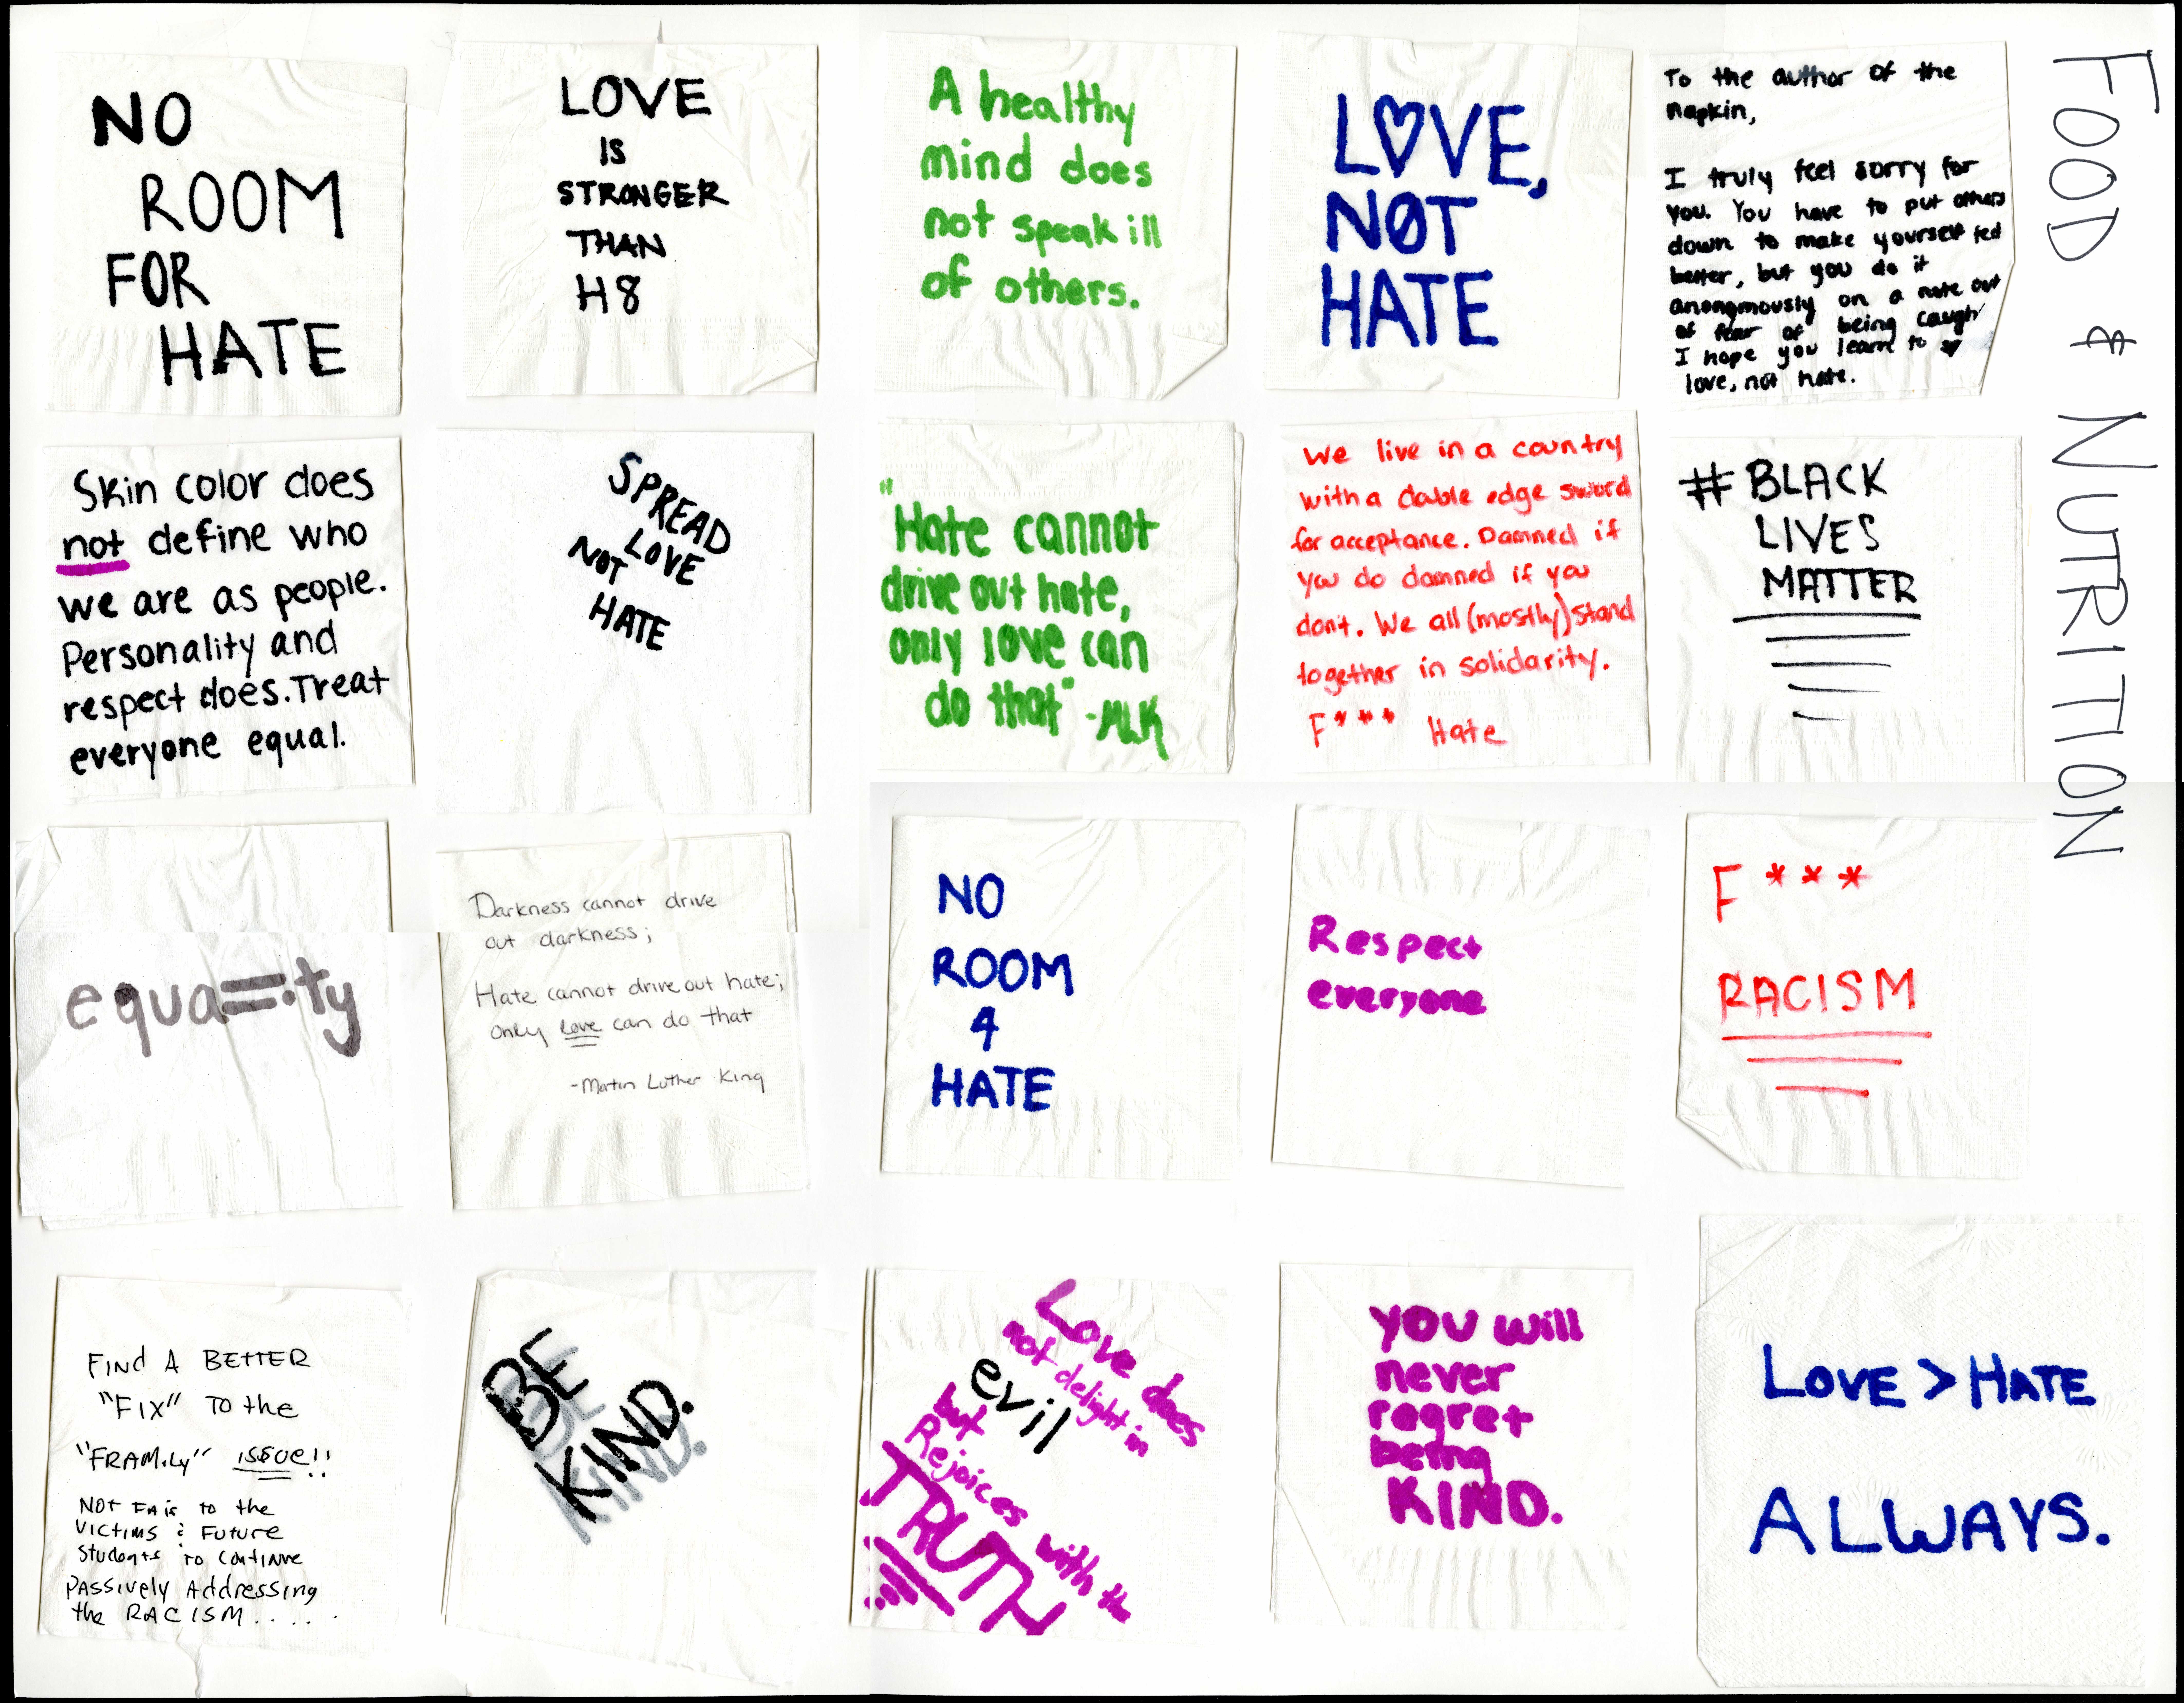 NO
ROOM
FOR
HATE
LOVE
IS
STRONGER
THAN
H8
A healthy
mind does
not speak ill
of others.
LOVE,
NOT
HATE
To the author of the
napkin,
I truly feel sorry for
you. You have to put others
down to make yourself feel
better, but you do it
anongmously on a note out
of fear of being caught
I hope you learn to
love, not hate.
FOOD & NUTRITION
Skin color does
not define who
we are as people.
Personality and
respect does. Treat
everyone equal.
SPREAD
LOVE
NOT
HATE
"Hate cannot
drive out hate,
only love can
do that" -MLK
We live in a country
with a double edge sword
for acceptance. Damned if
you do damned if you
don't. We all (mostly) stand
together in solidarity.
F*** Hate
#BLACK
LIVES
MATTER
equa=ity
Darkness cannot drive
out darkness;
Hate cannot drive out hate;
only love can do that
-Martin Luther King
NO
ROOM
4
HATE
Respect
everyone
F***
RACISM
FINd A BETTER
"FIX" TO the
"FRAMily" ISSUE!!
NOT FAir to the
VICTIMS & FUTURE
Students to CONTINUE
PASSively Addressing
the RACISM.....
BE
KIND.
Love does
not delight in
evil
but
Rejoices with the
TRUTH
YOU will
never
regret
being
KIND.
LOVE > HATE
ALWAYS.